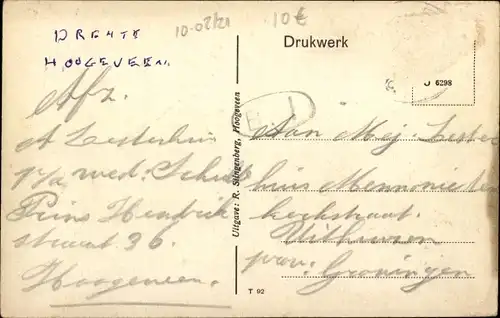 DRENTE
HOOGEVEEN.
10-02/21
10€
Drukwerk
J 6298
Afz.
A Zesterhuis
p/a wed. Schut
Prins Hendrik
straat 36.
Hoogeveen.
Uitgave: R. Slingenberg, Hoogeveen
Aan Mej. Zester
huis Mennonieten
kerkstraat.
Uithuizen
prov. Groningen
T 92